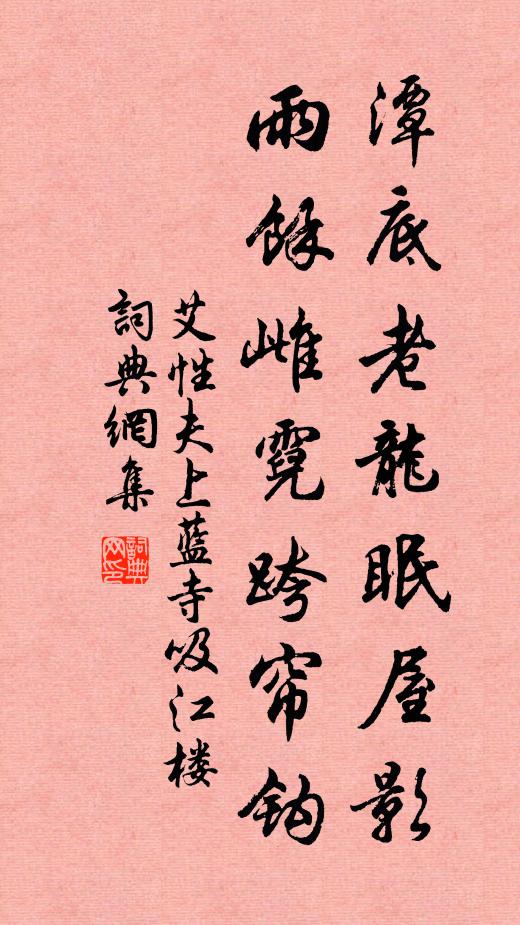 潭底老龍眠屋影
雨餘雌霓跨帘鈎
艾性夫上藍寺吸江楼
詞典網集
詞典
网印